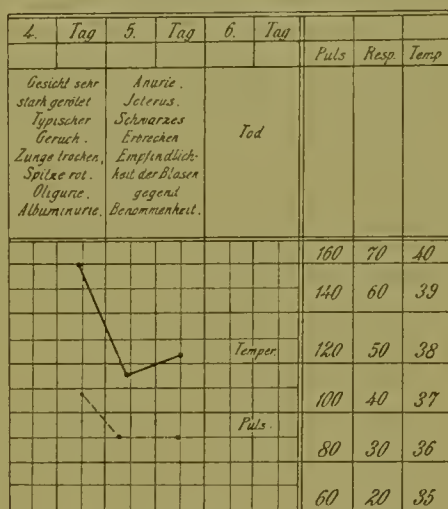 4. Tag 5. Tag 6. Tag
Puls Resp. Temp
Gesicht sehr
stark gerötet
Typischer
Geruch.
Zunge trocken,
Spitze rot.
Oligurie.
Albuminurie.
Anurie.
Jcterus.
Schwarzes
Erbrechen
Empfindlich-
keit der Blasen
gegend
Benommenheit.
Tod
160 70 40
140 60 39
Temper. 120 50 38
100 40 37
Puls.
80 30 36
60 20 35